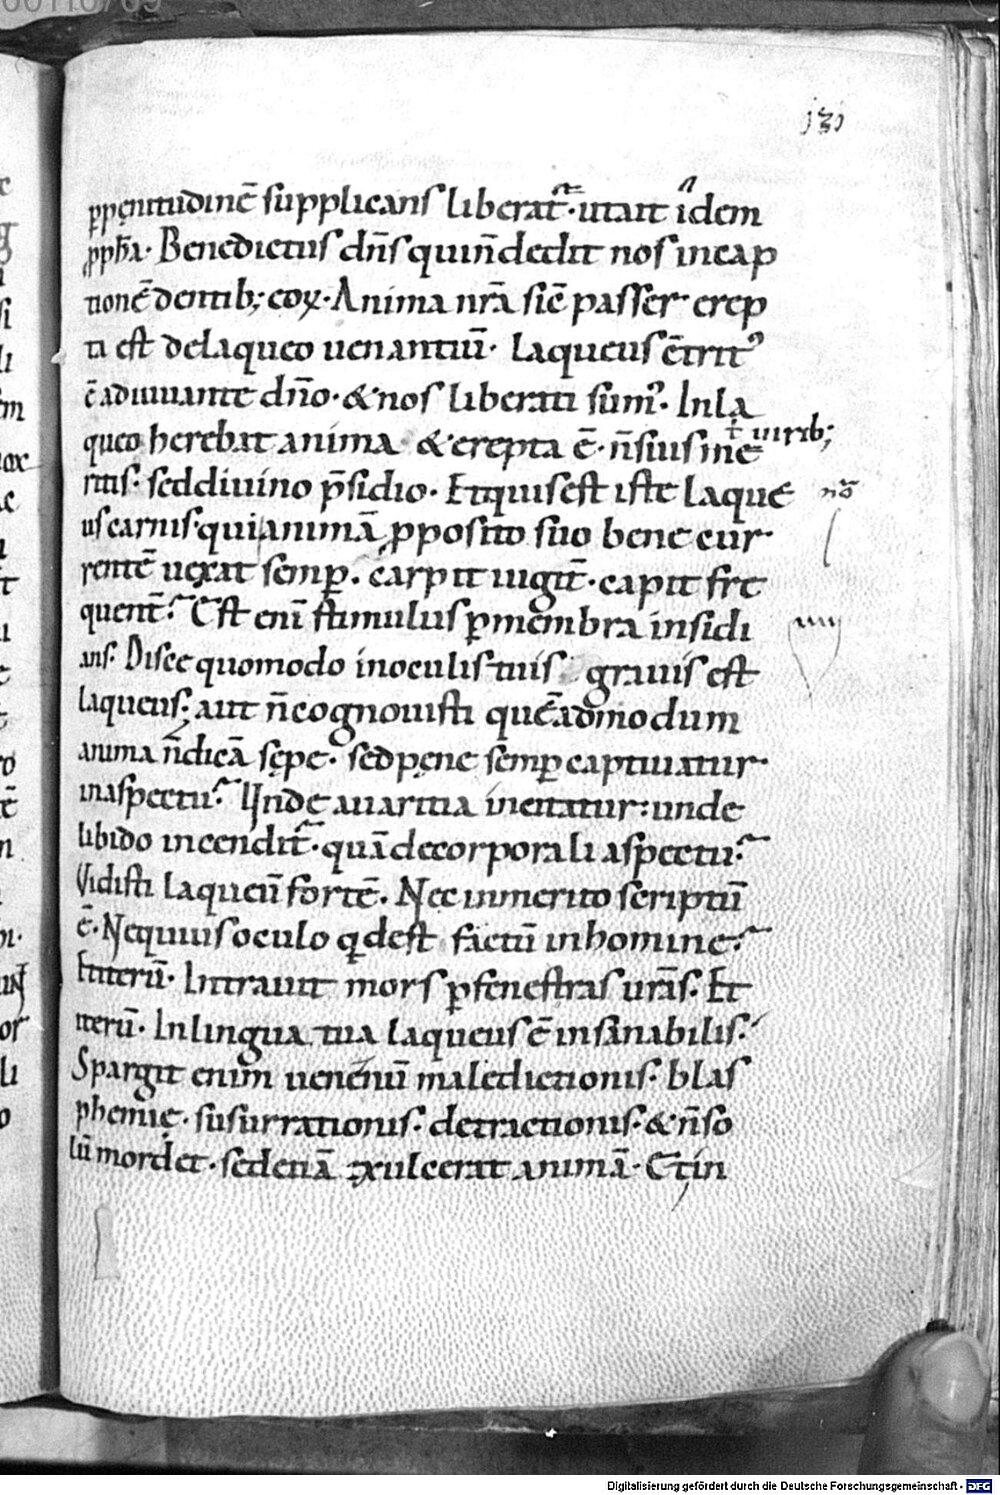 131
ppęnitudinē supplicans liberat̄. ut ait idem
ppħa. Benedictus dn̄s qui n̄ dedit nos in cap
tionē dentib; eoꝝ. Anima nr̄a sic̄ passer erep
ta est de laqueo uenantiū. Laqueus c̄trit᾽
ē adiuuante dn̄o. & nos liberati sum᾽. In la
queo herebat anima & erepta ē. n̄ suis me
ł uirib;
ritis. sed diuino p̄sidio. Et quis est iste laque
us carnis qui animā ꝓposito suo bene cur
rentē uexat semꝑ. carpit iugit̄. capit fre
quent̄. Est eni stimulus ꝑ membra insidi
ans. Disce quomodo in oculis tuis grauis est
laqueus; aut n̄ cognouisti quēadmodum
anima n̄ dicā sępe. sed pęne semꝑ captiuatur
in aspectu. Unde auaritia incitatur: unde
libido incendit̄. quā de corporali aspectu.
Vidisti laqueū fortē. Nec inmerito scriptū
ē. Nequius oculo qd est factū in homine.
Et iterū. Intrauit mors ꝑ fenestras ur̄as. Et
iterū. In lingua tua laqueus ē insanabilis.
Spargit enim uenenū maledictionis. blas
phemię. susurrationis. detractionis. & n̄ so
lū mordet. sed etiā exulcerat animā. Et in
Digitalisierung gefördert durch die Deutsche Forschungsgemeinschaft - DFG